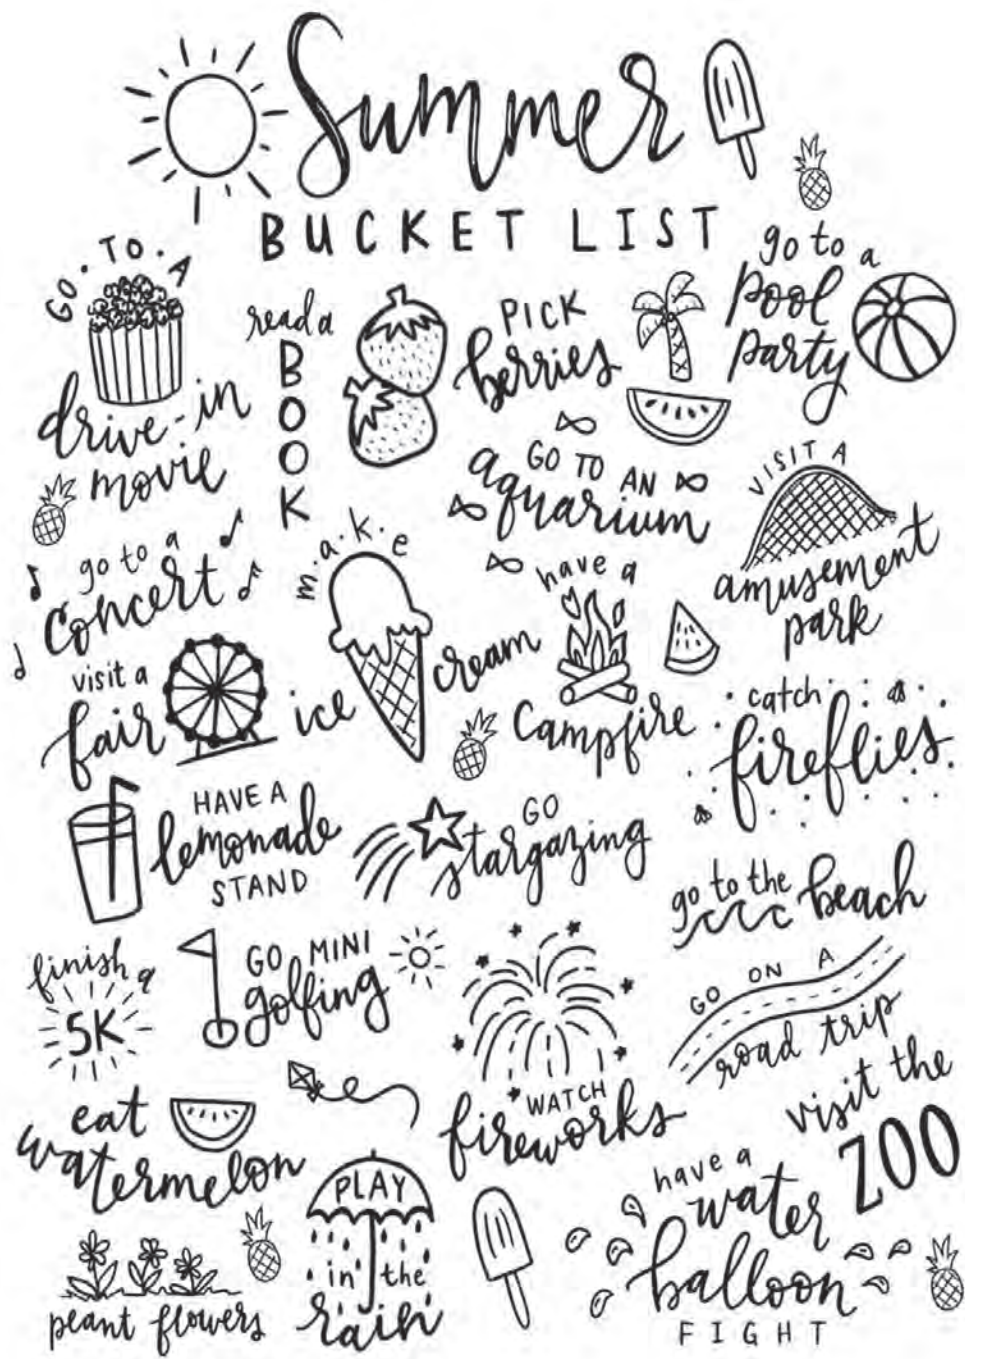 Summer
BUCKET LIST
GO · TO · A
drive-in
movie
read a
BOOK
PICK
berries
go to a
pool
party
GO TO AN
aquarium
VISIT A
amusement
park
go to a
concert
m.a.k.e
ice cream
have a
campfire
visit a
fair
catch
fireflies
HAVE A
lemonade
STAND
GO
stargazing
go to the beach
finish a
5K
GO MINI
golfing
WATCH
fireworks
GO ON A
road trip
visit the
ZOO
eat
watermelon
PLAY
in the
rain
have a
water
balloon
FIGHT
plant flowers